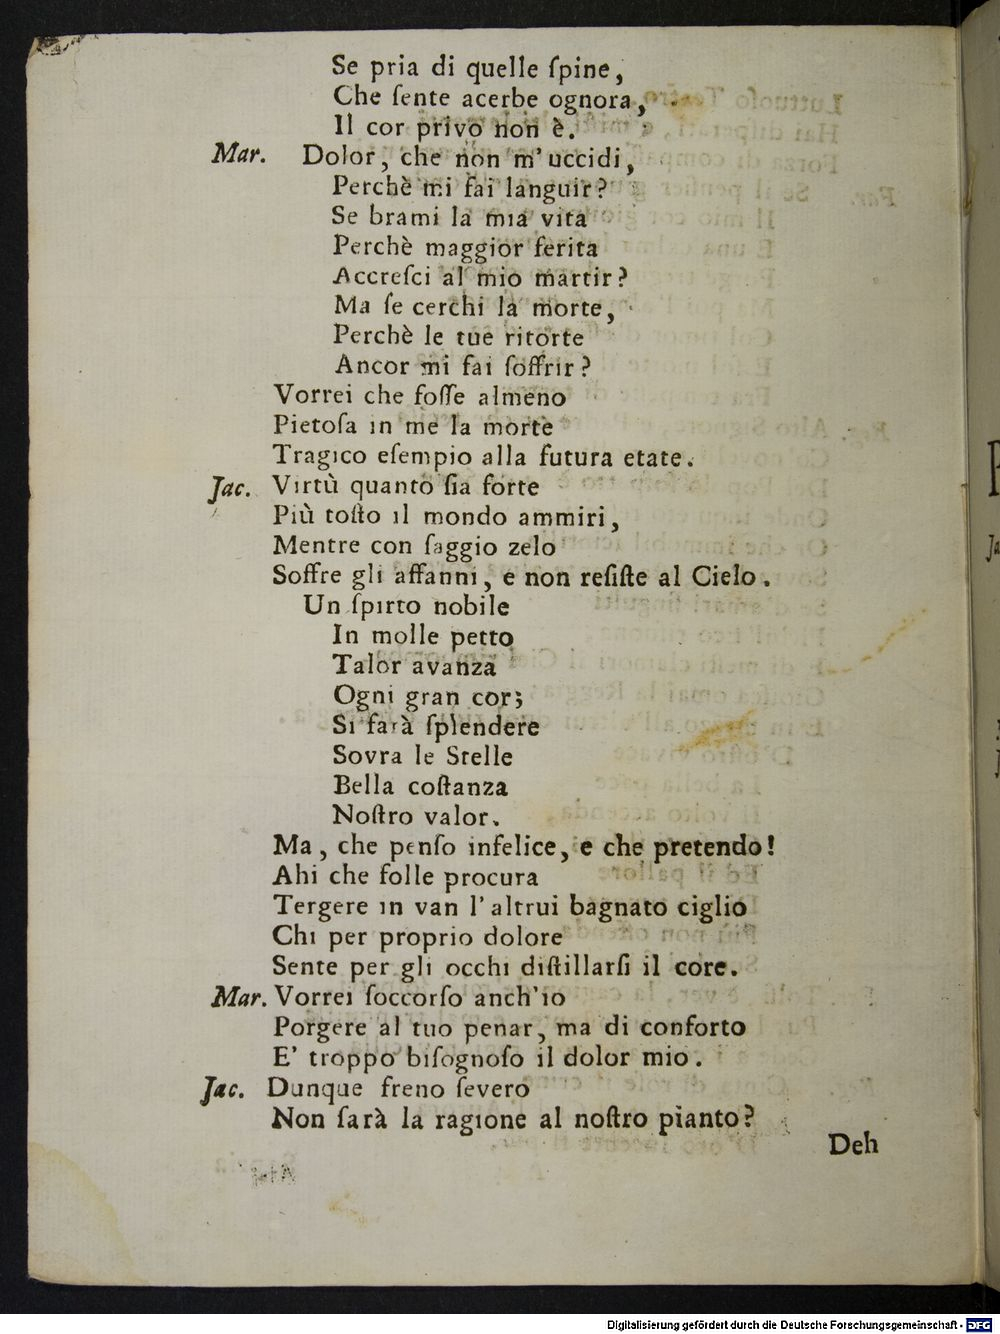 Se pria di quelle ſpine,
Che ſente acerbe ognora,
Il cor privo non è.
Mar. Dolor, che non m' uccidi,
Perchè mi fai languir?
Se brami la mia vita
Perchè maggior ferita
Accreſci al mio martir?
Ma ſe cerchi la morte,
Perchè le tue ritorte
Ancor mi fai ſoffrir?
Vorrei che foſſe almeno
Pietoſa in me la morte
Tragico eſempio alla futura etate.
Jac. Virtù quanto ſia forte
Più toſto il mondo ammiri,
Mentre con ſaggio zelo
Soffre gli affanni, e non reſiſte al Cielo.
Un ſpirto nobile
In molle petto
Talor avanza
Ogni gran cor;
Si farà ſplendere
Sovra le Stelle
Bella coſtanza
Noſtro valor.
Ma, che penſo infelice, e che pretendo!
Ahi che folle procura
Tergere in van l' altrui bagnato ciglio
Chi per proprio dolore
Sente per gli occhi diſtillarſi il core.
Mar. Vorrei ſoccorſo anch'io
Porgere al tuo penar, ma di conforto
E' troppo biſognoſo il dolor mio.
Jac. Dunque freno ſevero
Non ſarà la ragione al noſtro pianto?
Deh
Digitalisierung gefördert durch die Deutsche Forschungsgemeinschaft - DFG